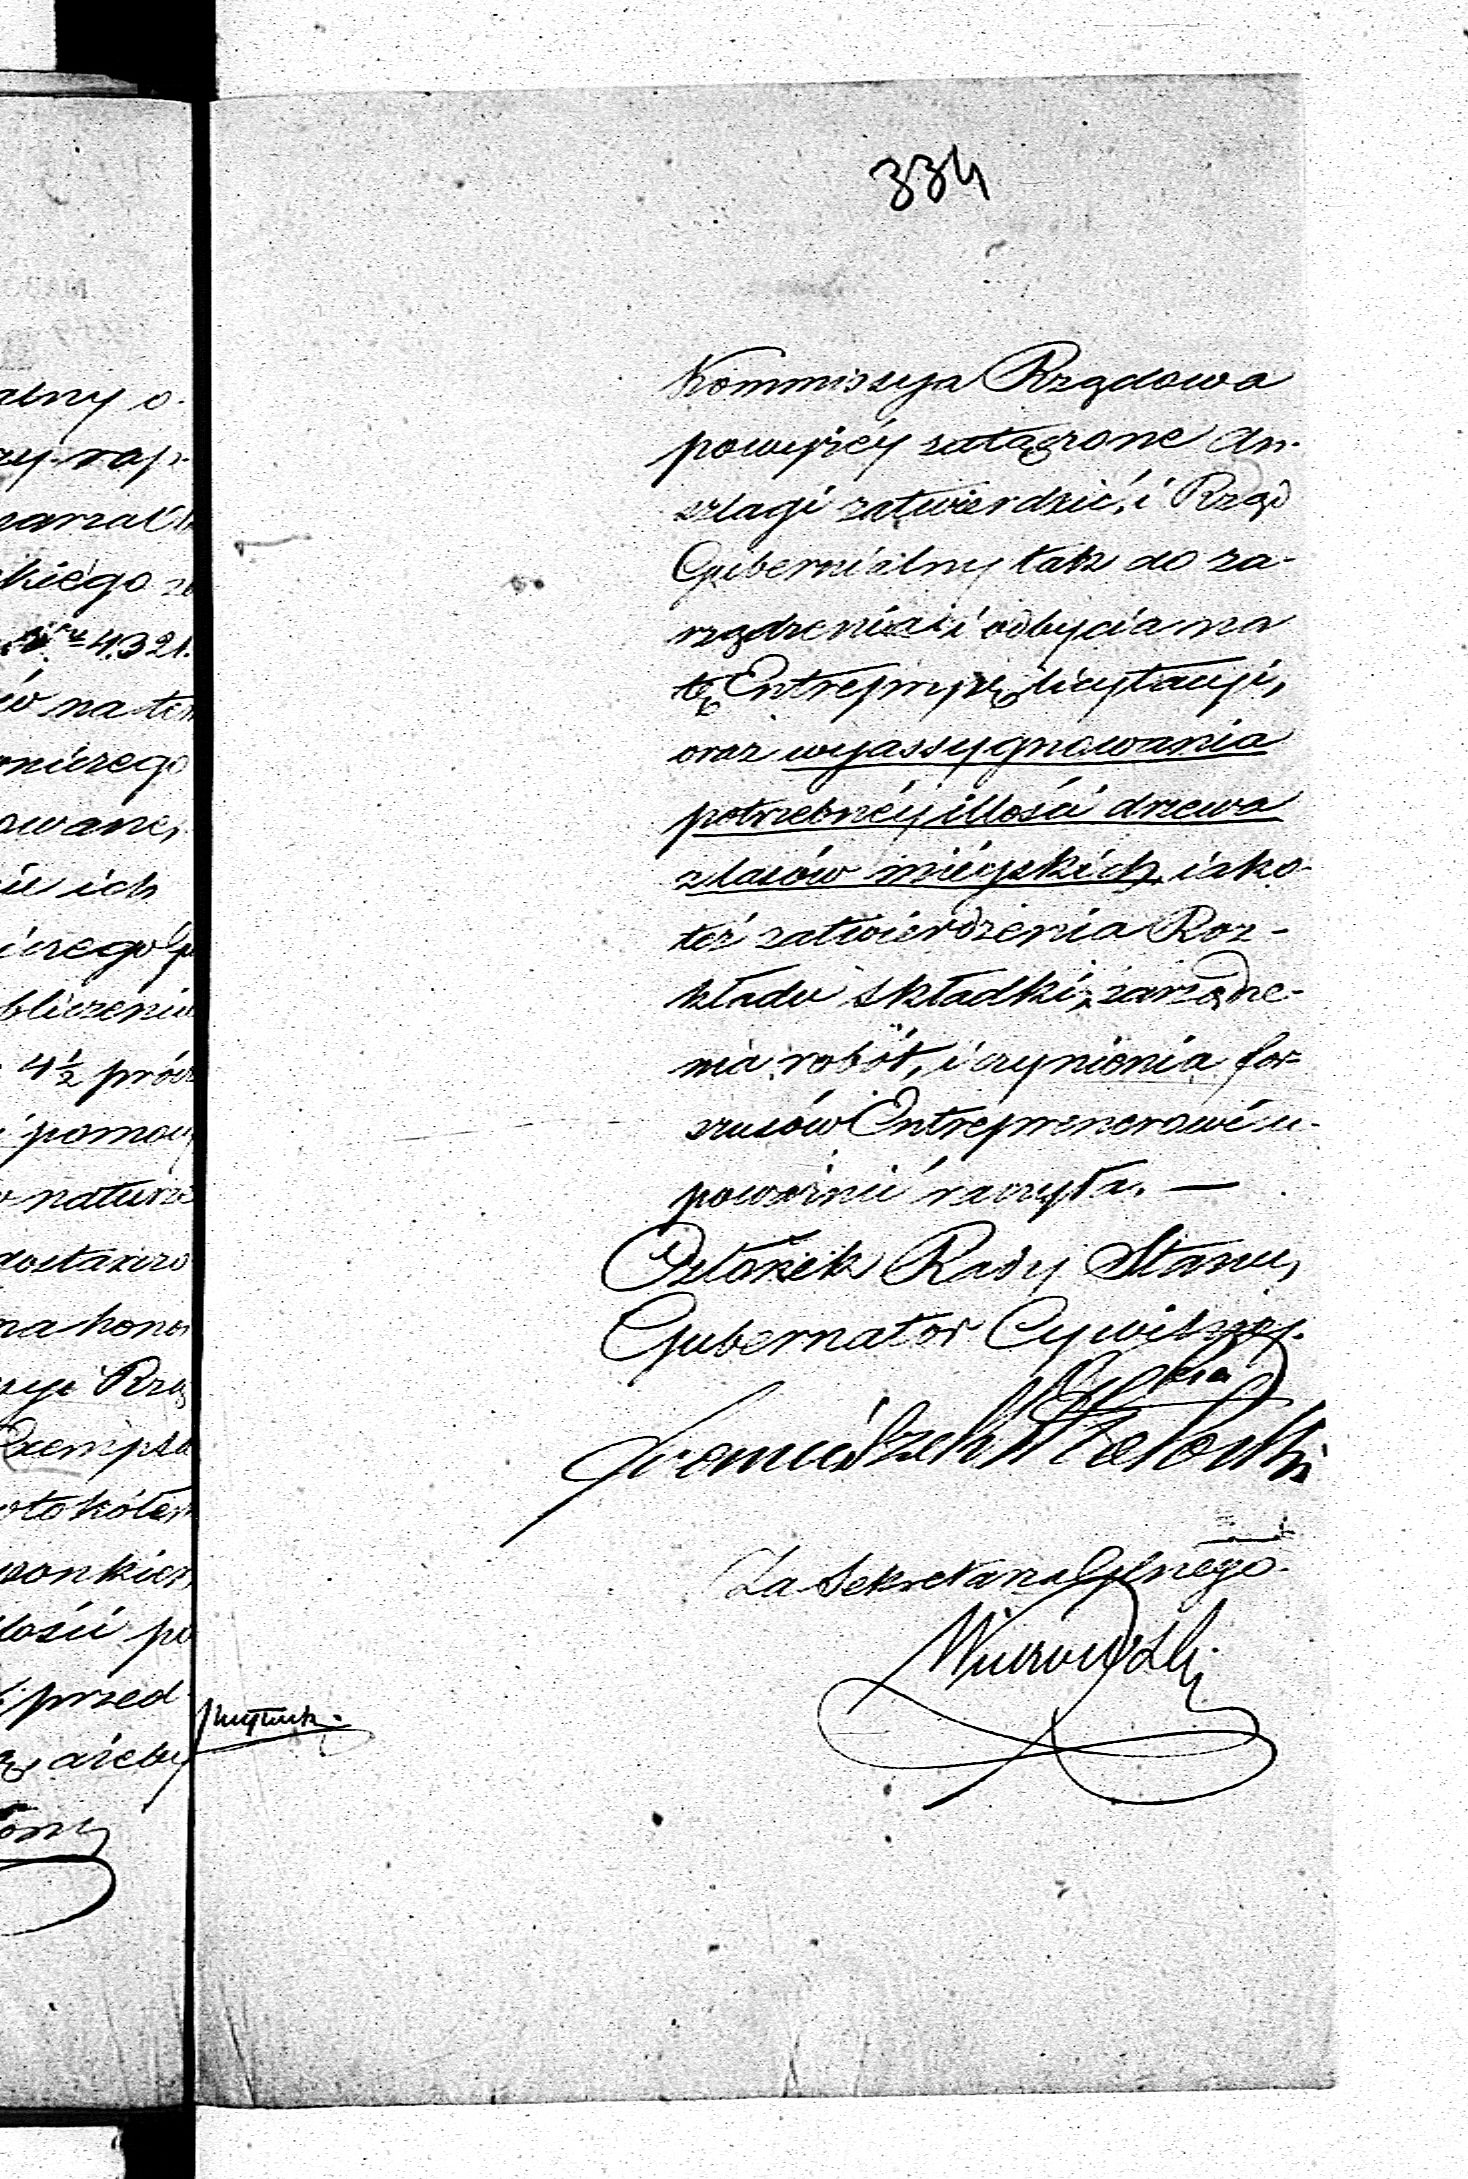 334
Kommissya Rządowa
powyżéy załączone An-
szlagi zatwierdzić, i Rząd
Gubernialny tak do za-
rządzenia i odbycia na
tę Entrepryzę licytacyi,
oraz wyassygnowania
potrzebnéy illości drzewa
z lasów mieyskich, iako-
też zatwierdzenia Roz-
kładu składki, zarządze-
nia robót, i czynienia for-
szusów Entreprenerowi u-
poważnić raczyła. —
Członek Rady Stanu,
Gubernator Cywilny.
Za Sekretarza Gślnego
alny o-
czy rap-
kiego
4321.
ów na tem
niczego
owane,
ich
iczego
bliczenia
4½
pomocy
naturze
na hono
Rzą
Exempla
przed-
ażeby